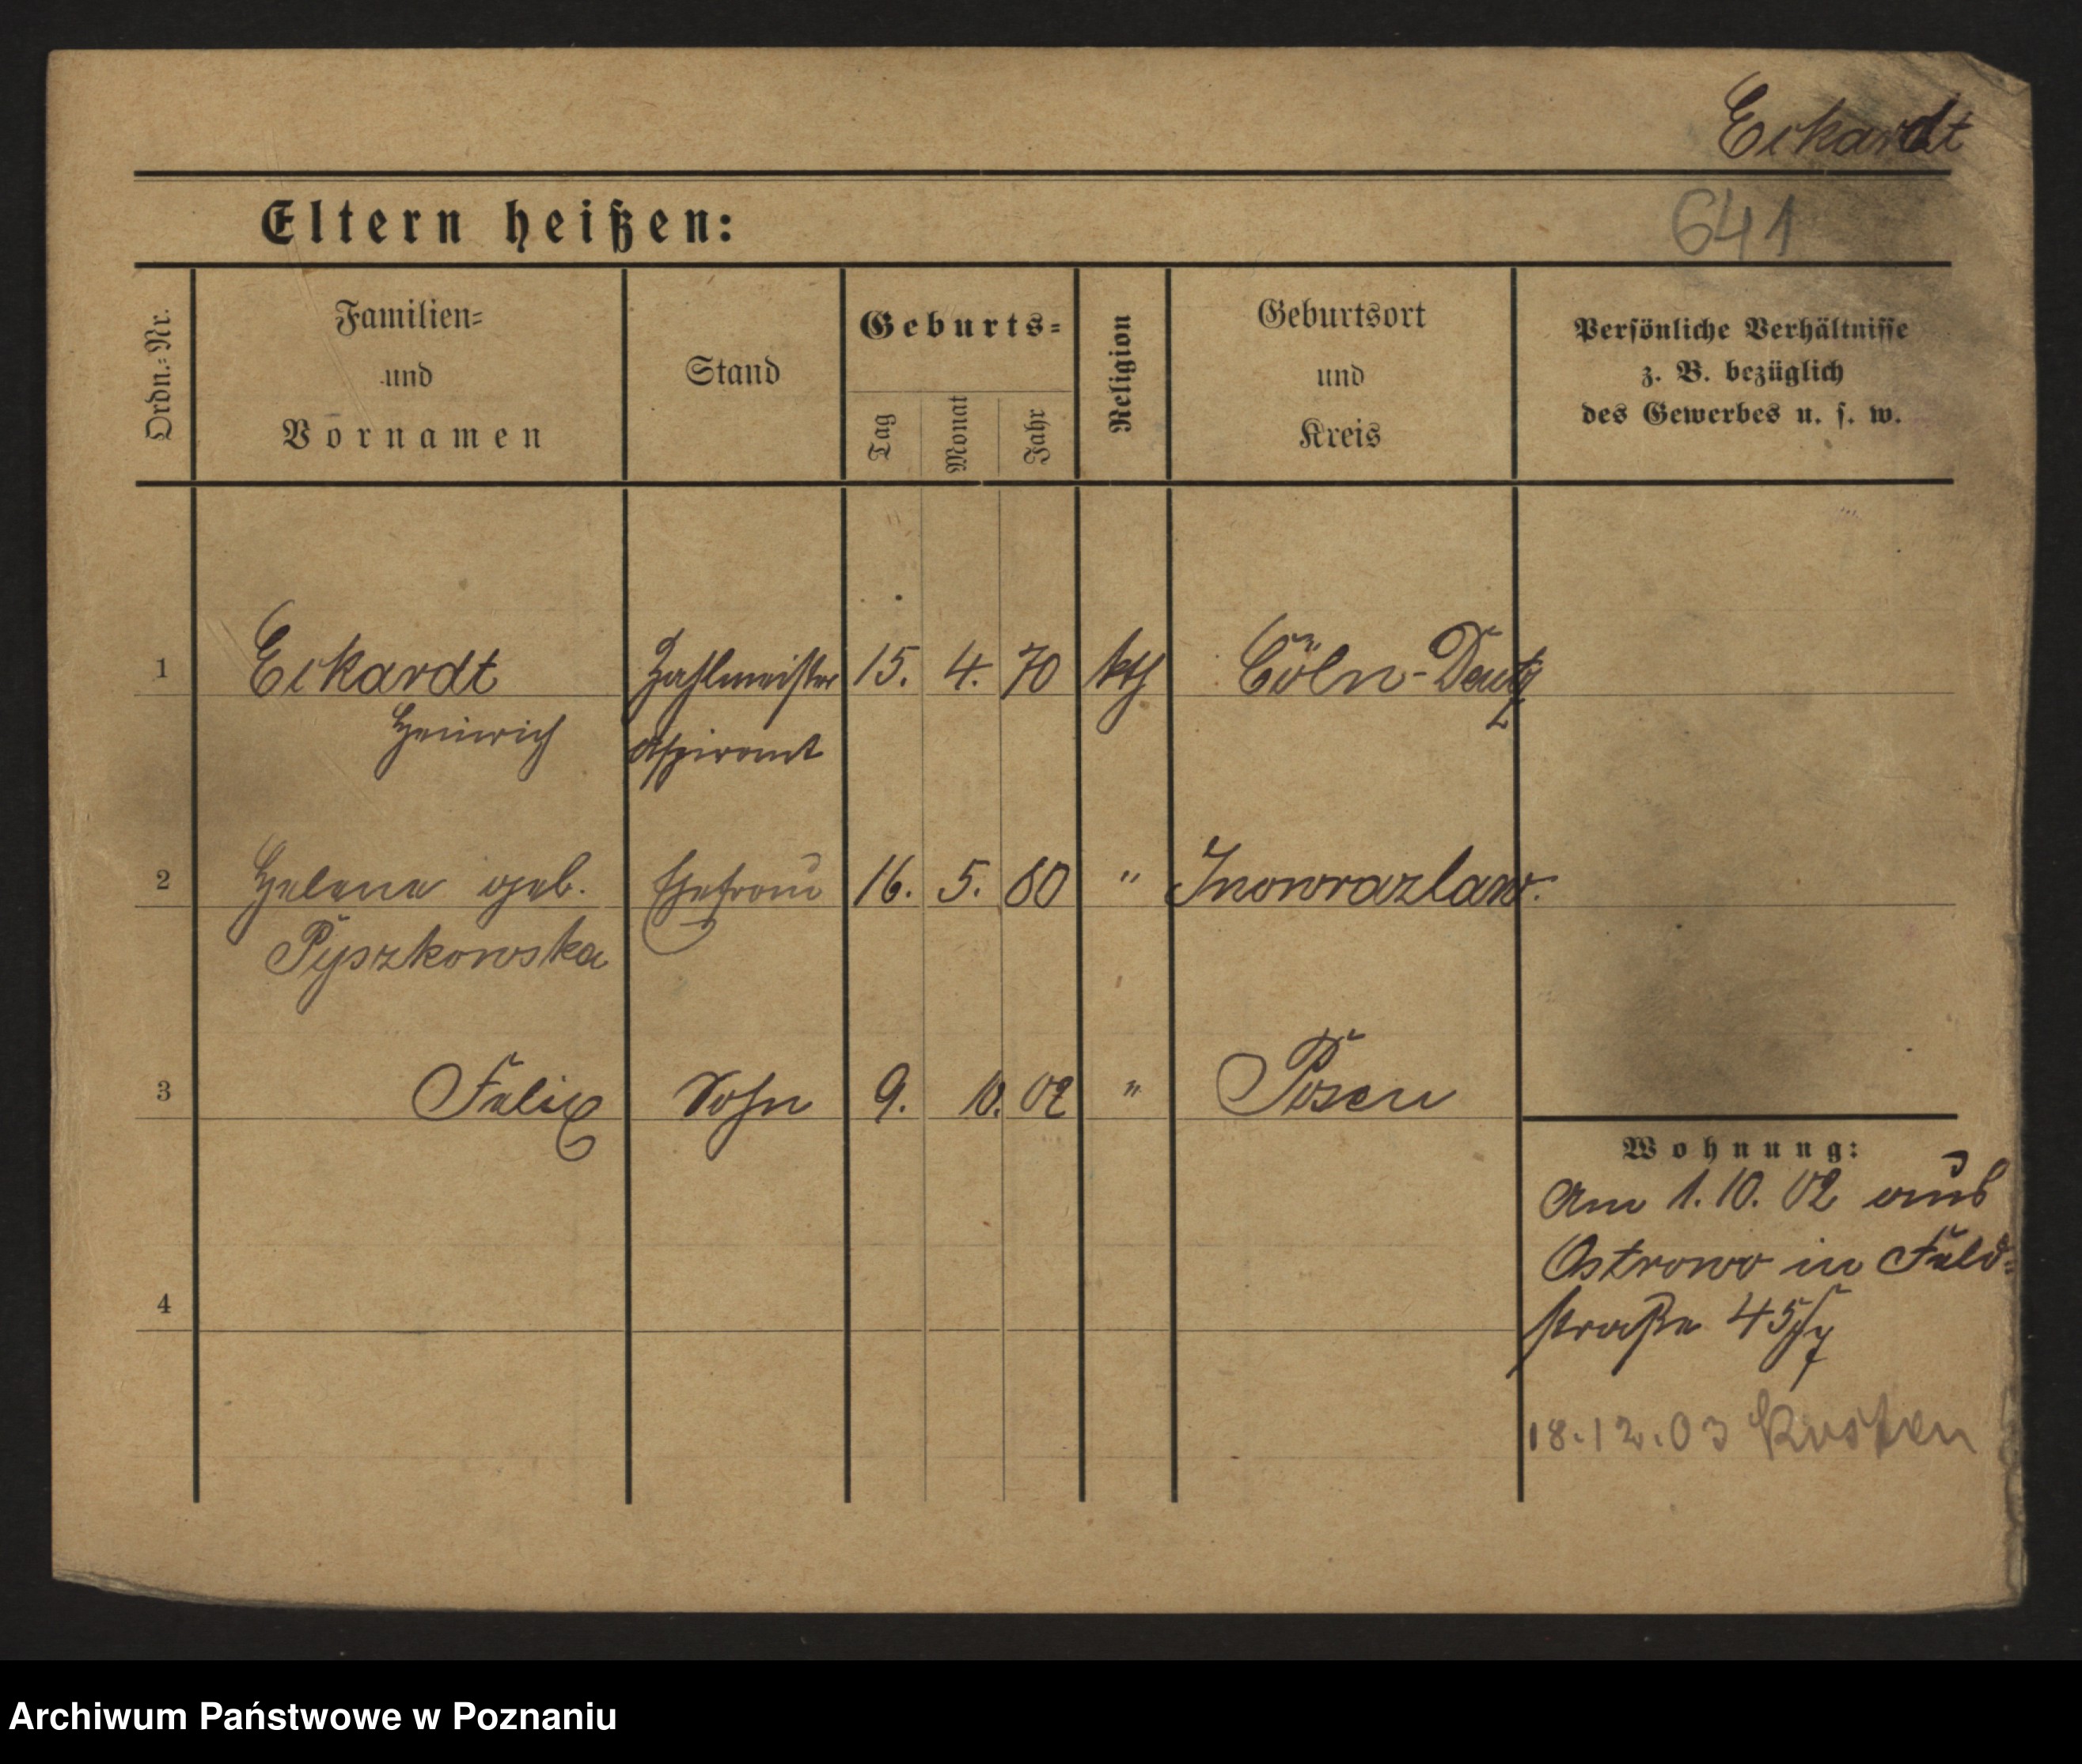 Eckardt
Eltern heißen:
641
Ordn.=Nr.
Familien=
und
Vornamen
Stand
Geburts=
Tag
Monat
Jahr
Religion
Geburtsort
und
Kreis
Persönliche Verhältnisse
z. B. bezüglich
des Gewerbes u. s. w.
1 Eckardt Zahlmeister 15. 4. 70 kth Cöln-Deutz
Heinrich Aspirant
2 Helene geb. Ehefrau 16. 5. 80 " Inowrazlaw.
Pyszkowska
3 Felix Sohn 9. 10. 02 " Posen
Wohnung:
Am 1. 10. 02 aus
Ostrowo in Feld=
straße 4
4
18.12.03 Kosten
Archiwum Państwowe w Poznaniu